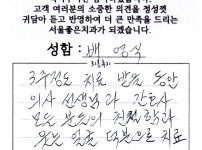 고객 여러분의 소중한 의견을 정성껏
귀담아 듣고 반영하여 더 큰 만족을 드리는
서울좋은치과가 되겠습니다.
성함 : 배 영식
3주정도 치료 받는 동안
의사 선생님과 간호사
모든 분들의 친절함과
웃는 얼굴 덕분으로 치료